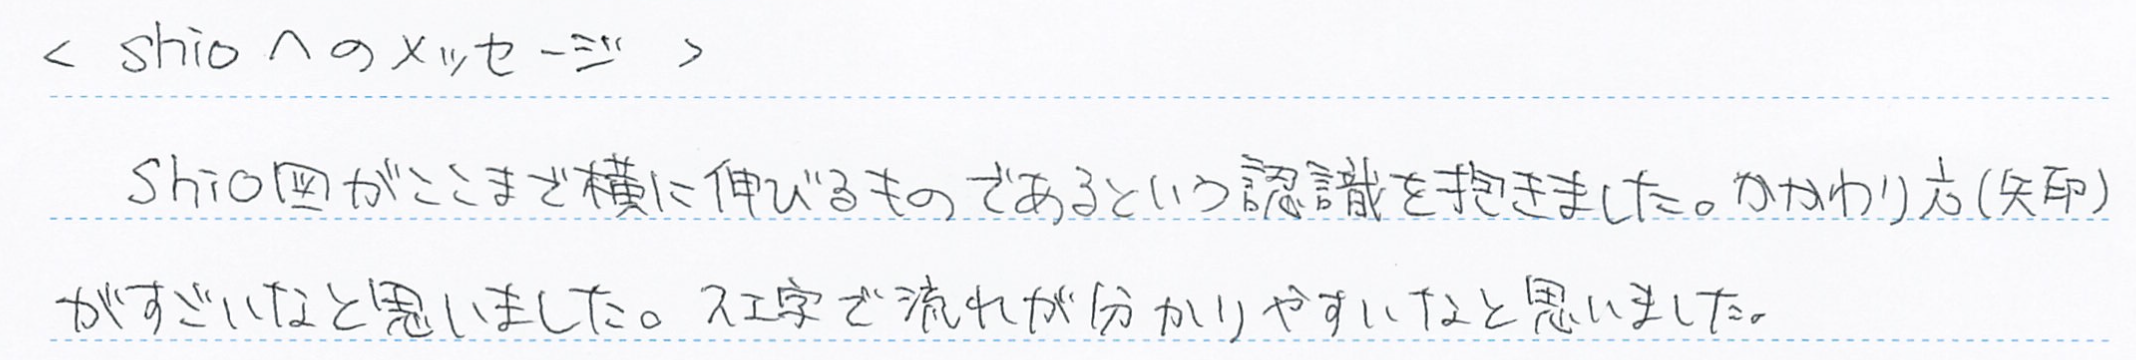 < shioへのメッセージ >
shio図がここまで横に伸びるものであるという認識を抱きました。かかわり方(矢印)
がすごいなと思いました。ス工字で流れが分かりやすいなと思いました。